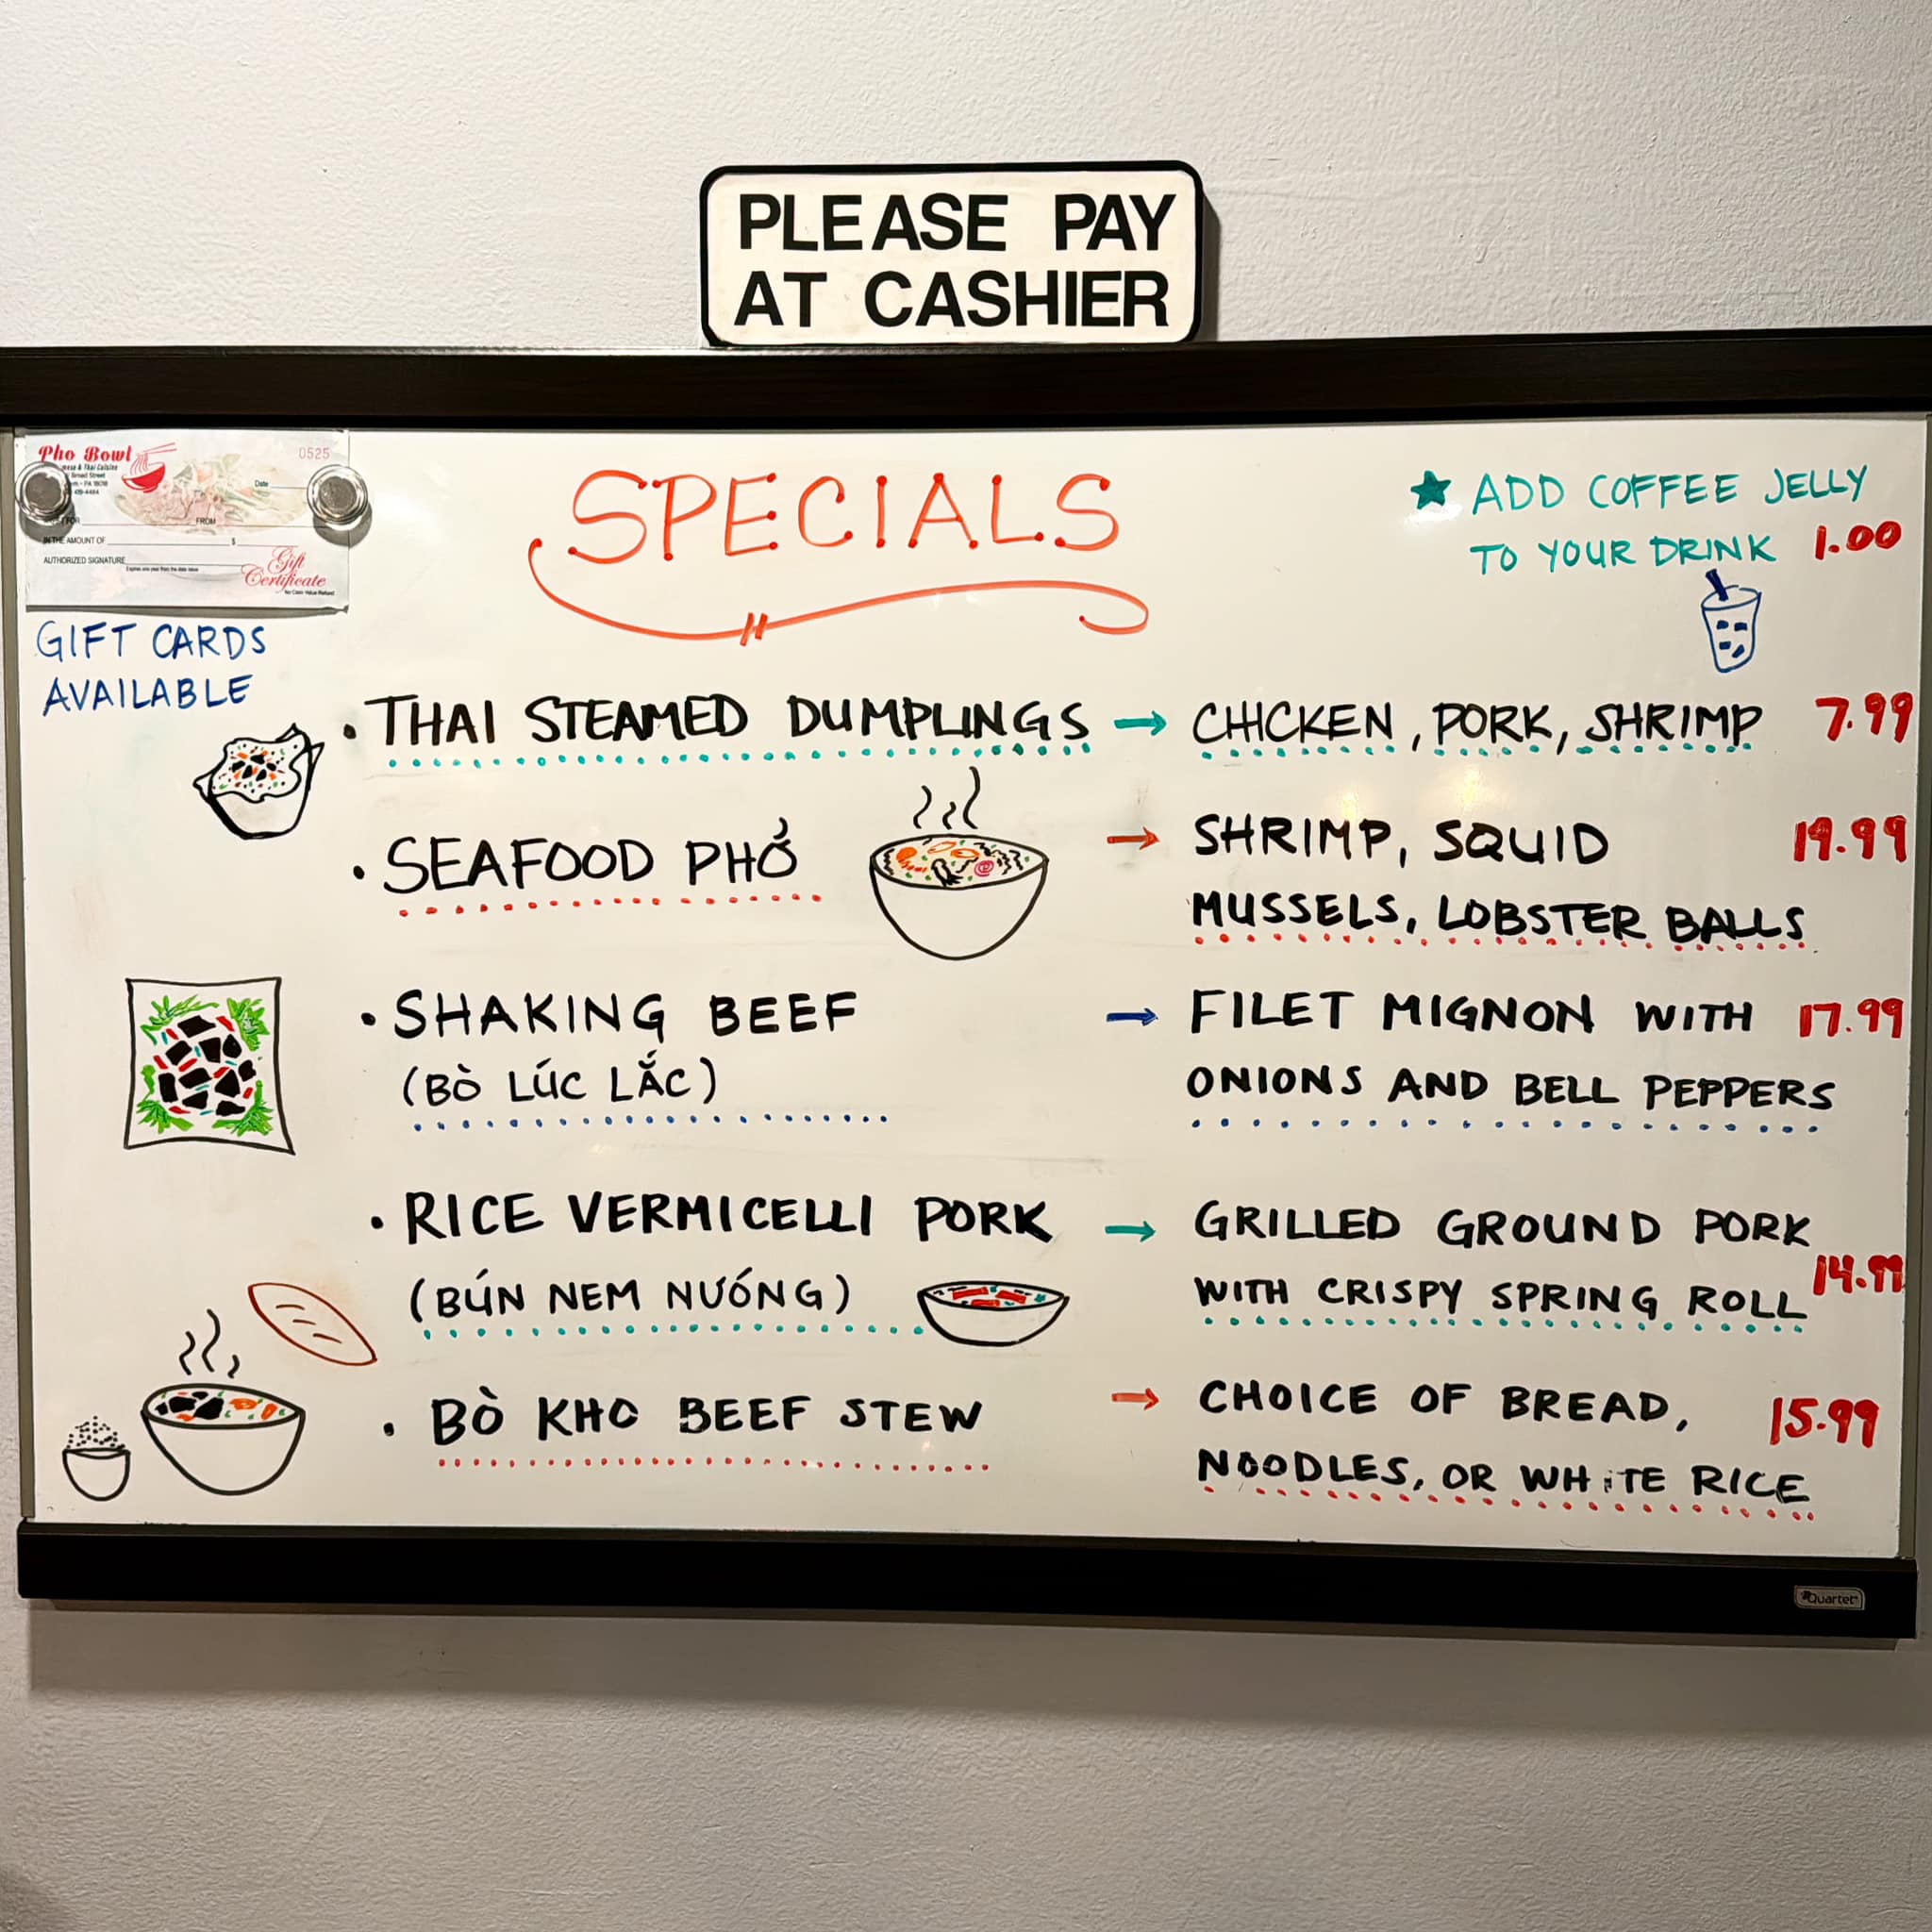 PLEASE PAY
AT CASHIER
Pho Bowl
0525
& Thai Cuisine
Broad Street
Date
FROM
IN THE AMOUNT OF $
AUTHORIZED SIGNATURE
Expires one year from the date value
Gift
Certificate
No Cash Value Refund
GIFT CARDS
AVAILABLE
SPECIALS
★ ADD COFFEE JELLY
TO YOUR DRINK 1.00
• THAI STEAMED DUMPLINGS → CHICKEN, PORK, SHRIMP 7.99
• SEAFOOD PHỞ → SHRIMP, SQUID 19.99
MUSSELS, LOBSTER BALLS
• SHAKING BEEF → FILET MIGNON WITH 17.99
(BÒ LÚC LẮC) ONIONS AND BELL PEPPERS
• RICE VERMICELLI PORK → GRILLED GROUND PORK
(BÚN NEM NƯỚNG) WITH CRISPY SPRING ROLL 14.99
• BÒ KHO BEEF STEW → CHOICE OF BREAD, 15.99
NOODLES, OR WHITE RICE
Quartet